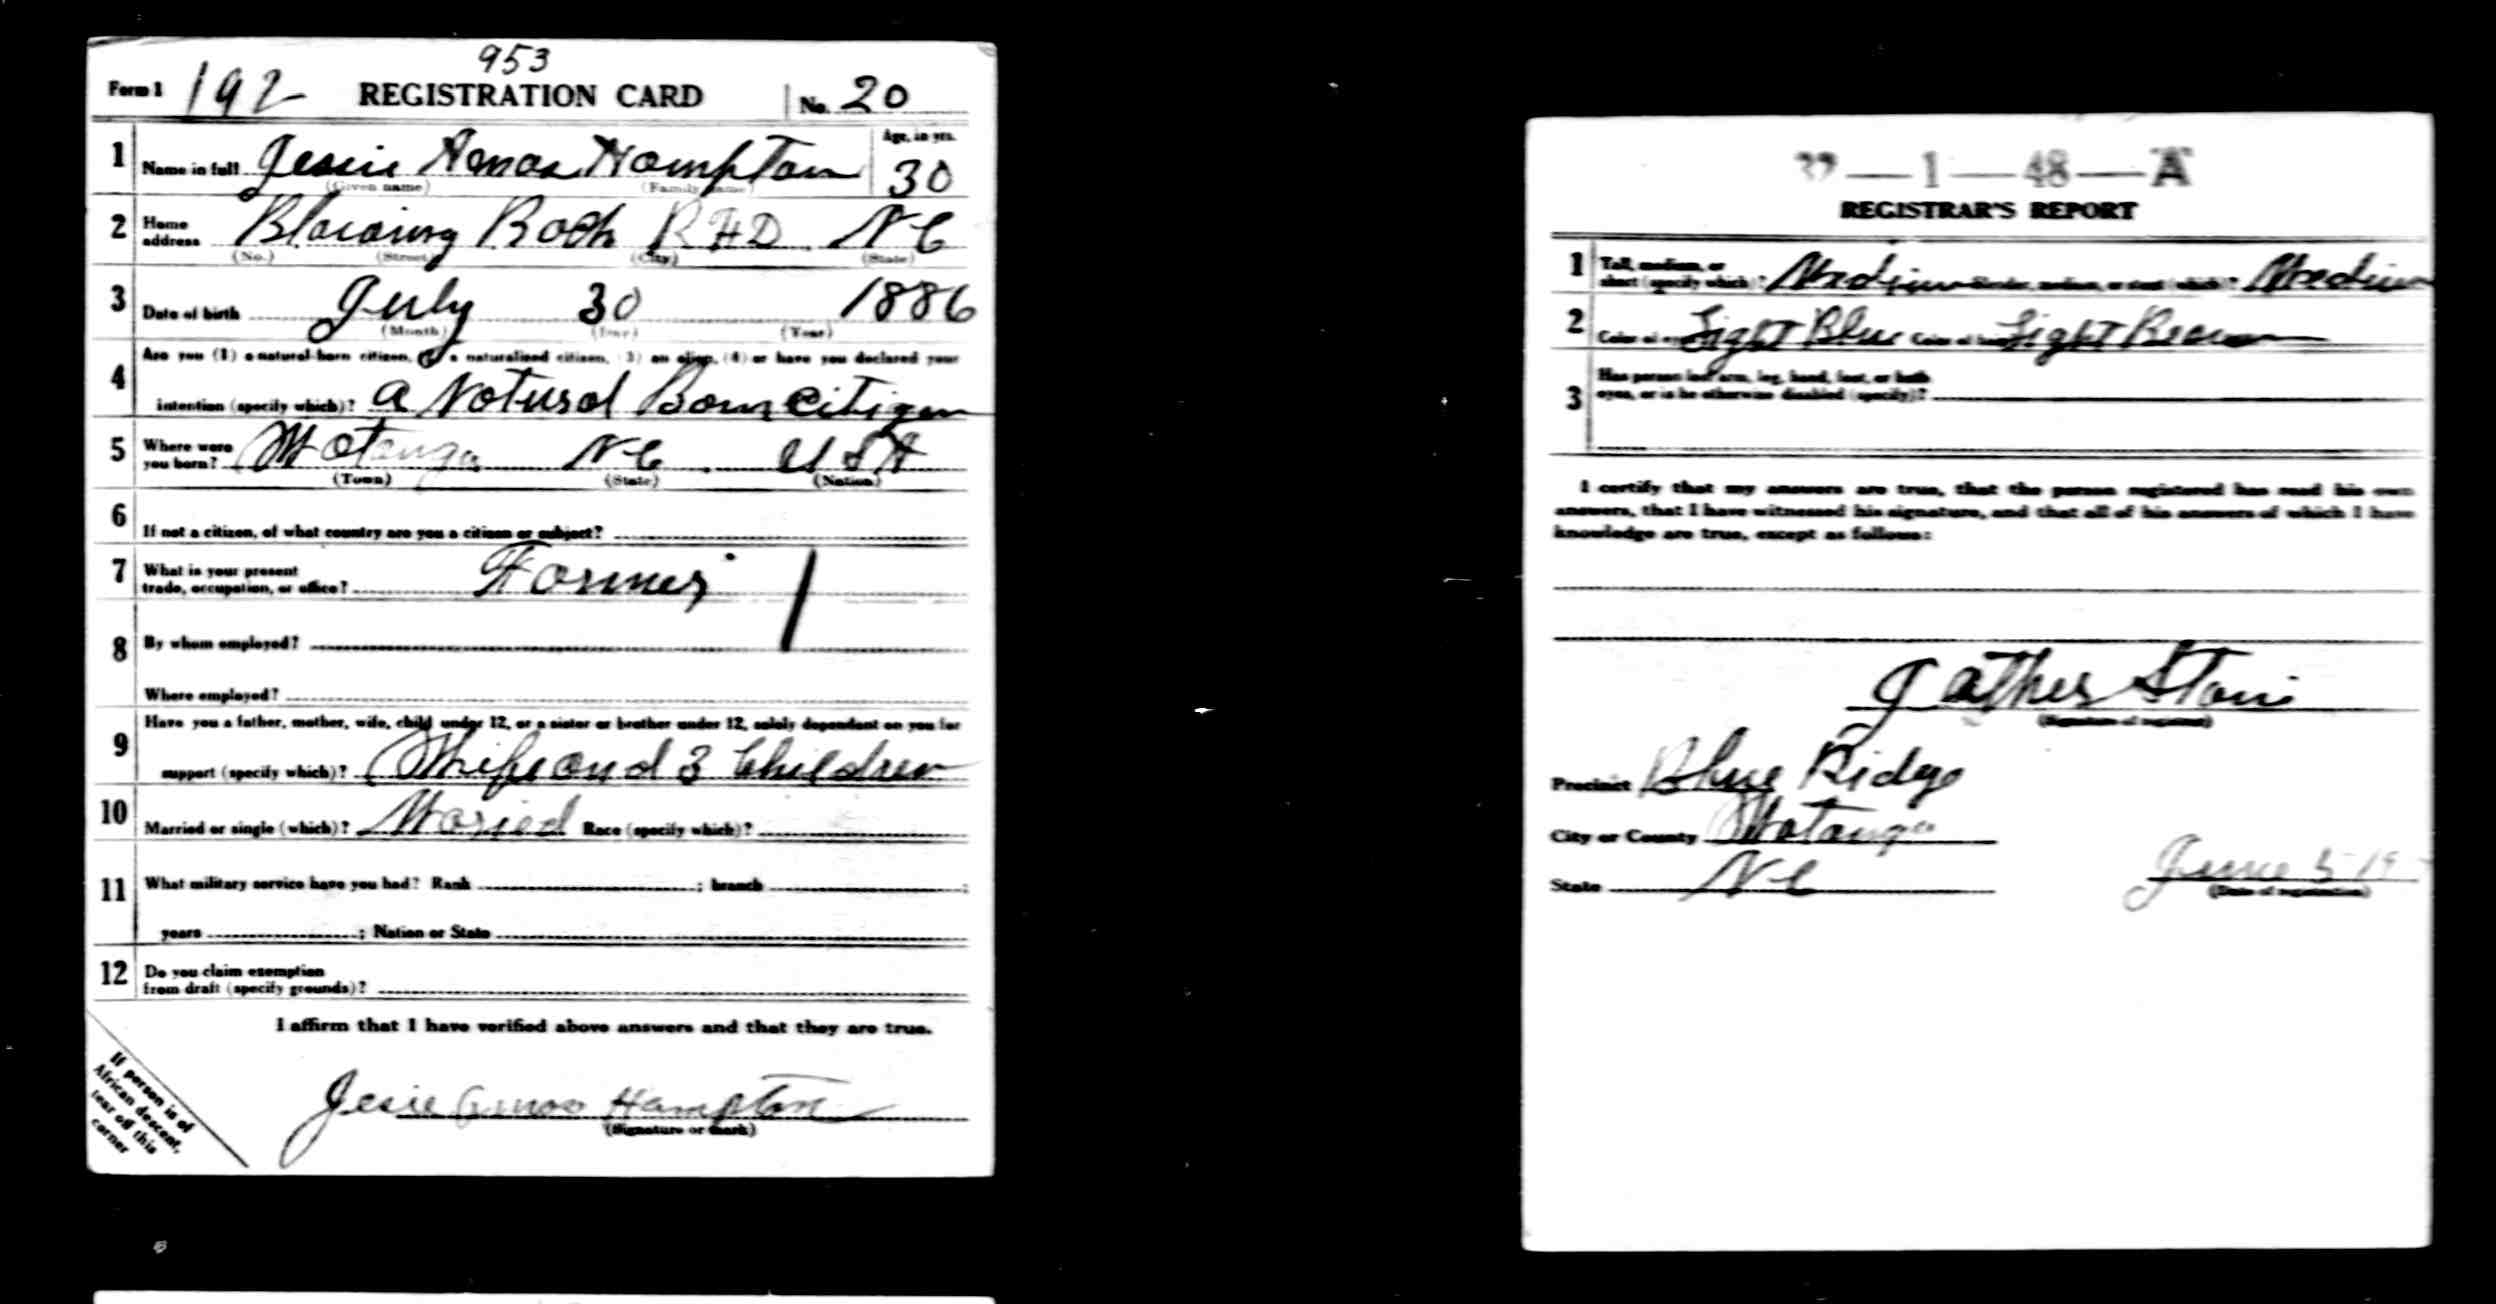 953
Form 1 192 REGISTRATION CARD No. 20
1 Name in full Jessie Amos Hampton Age, in yrs. 30
(Given name) (Family name)
2 Home address Blowing Rock RFD NC
(No.) (Street) (City) (State)
3 Date of birth July 30 1886
(Month) (Day) (Year)
4 Are you (1) a natural-born citizen, (2) a naturalized citizen, (3) an alien, (4) or have you declared your
intention (specify which)? a Natural Born citizen
5 Where were you born? Watauga NC USA
(Town) (State) (Nation)
6 If not a citizen, of what country are you a citizen or subject?
7 What is your present trade, occupation, or office? Farmer
8 By whom employed?
Where employed?
9 Have you a father, mother, wife, child under 12, or a sister or brother under 12, solely dependent on you for
support (specify which)? Wife and 3 Children
10 Married or single (which)? Maried Race (specify which)?
11 What military service have you had? Rank ; branch ;
years ; Nation or State
12 Do you claim exemption from draft (specify grounds)?
I affirm that I have verified above answers and that they are true.
Jesie Amos Hampton
(Signature or mark)
If person is of
African descent,
tear off this
corner
1—48—A
REGISTRAR'S REPORT
1 Tall, medium, or short (specify which)? Medium Slender, medium, or stout (which)? Medium
2 Color of eyes Light Blue Color of hair Light Brown
3 Has person lost arm, leg, hand, foot, or both eyes, or is he otherwise disabled (specify)?
I certify that my answers are true, that the person registered has read his own
answers, that I have witnessed his signature, and that all of his answers of which I have
knowledge are true, except as follows:
(Signature of registrar)
Precinct Blue Ridge
City or County Watauga
State NC June 5 19
(Date of registration)